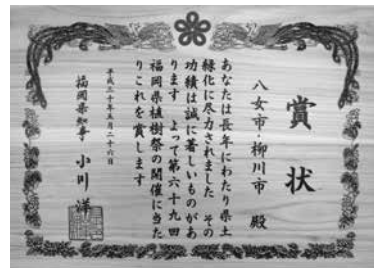 賞状
八女市・柳川市 殿
あなたは長年にわたり県土
緑化に尽力されました その
功績は誠に著しいものがあ
ります よって第六十九回
福岡県植樹祭の開催に当た
りこれを賞します
平成三十年五月二十六日
福岡県知事 小川 洋